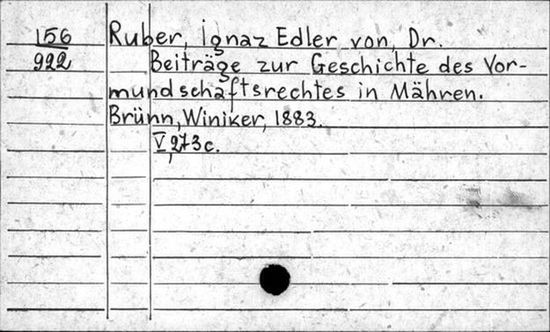 156 Ruber, Ignaz Edler von, Dr.
922 Beiträge zur Geschichte des Vor-
mundschaftsrechtes in Mähren.
Brünn, Winiker, 1883.
V, 273 c.